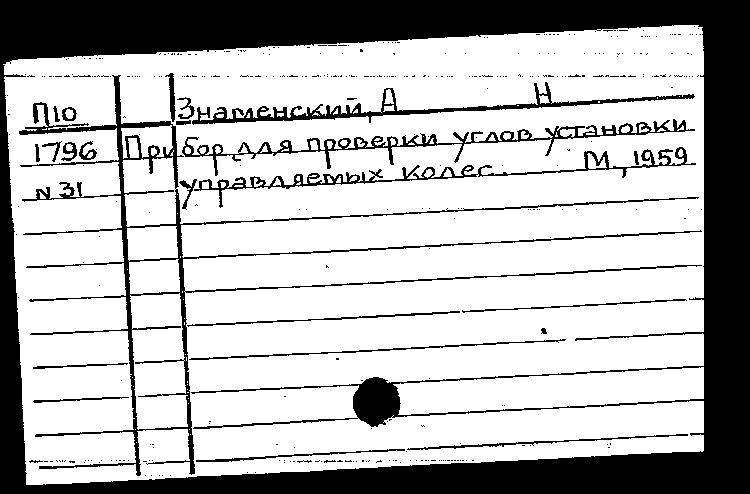 П10 Знаменский, А Н
1796 Прибор для проверки углов установки
N 31 управляемых колес. М, 1959